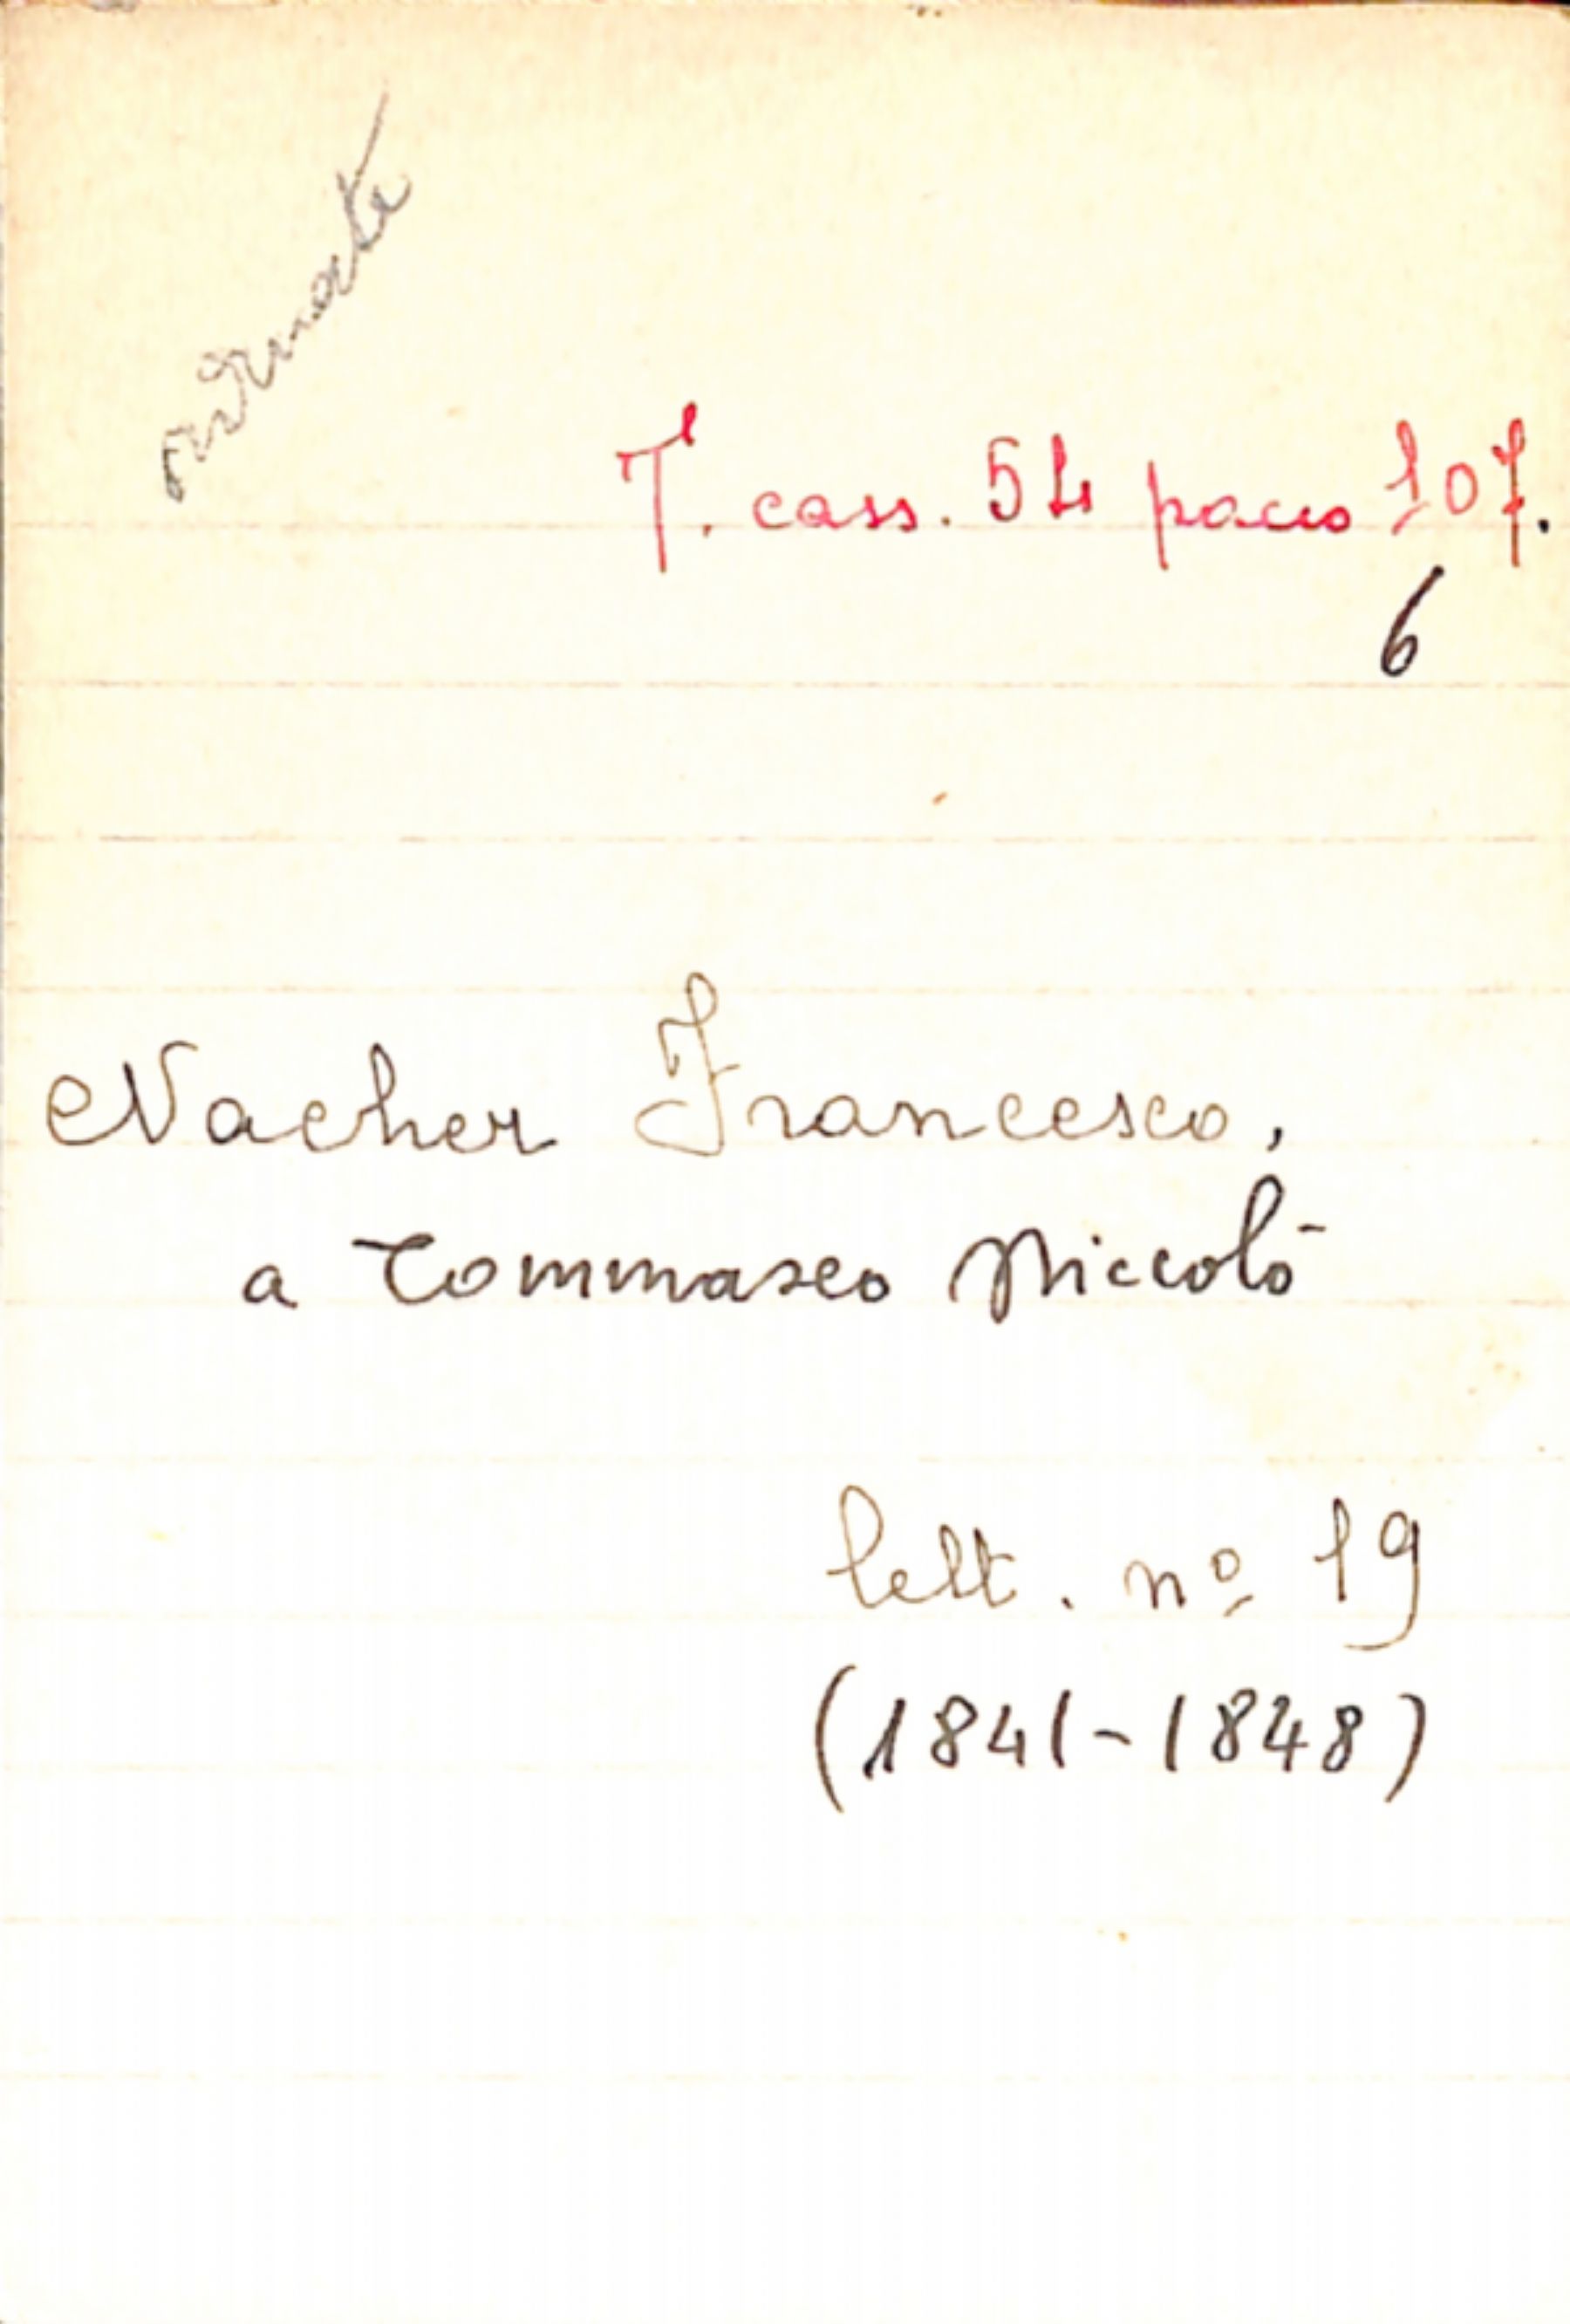 ordinate
T. cass. 54 pacco 107.
6
Nacher Francesco,
a Tommaseo Niccolò
lett. nº 19
(1841-1848)